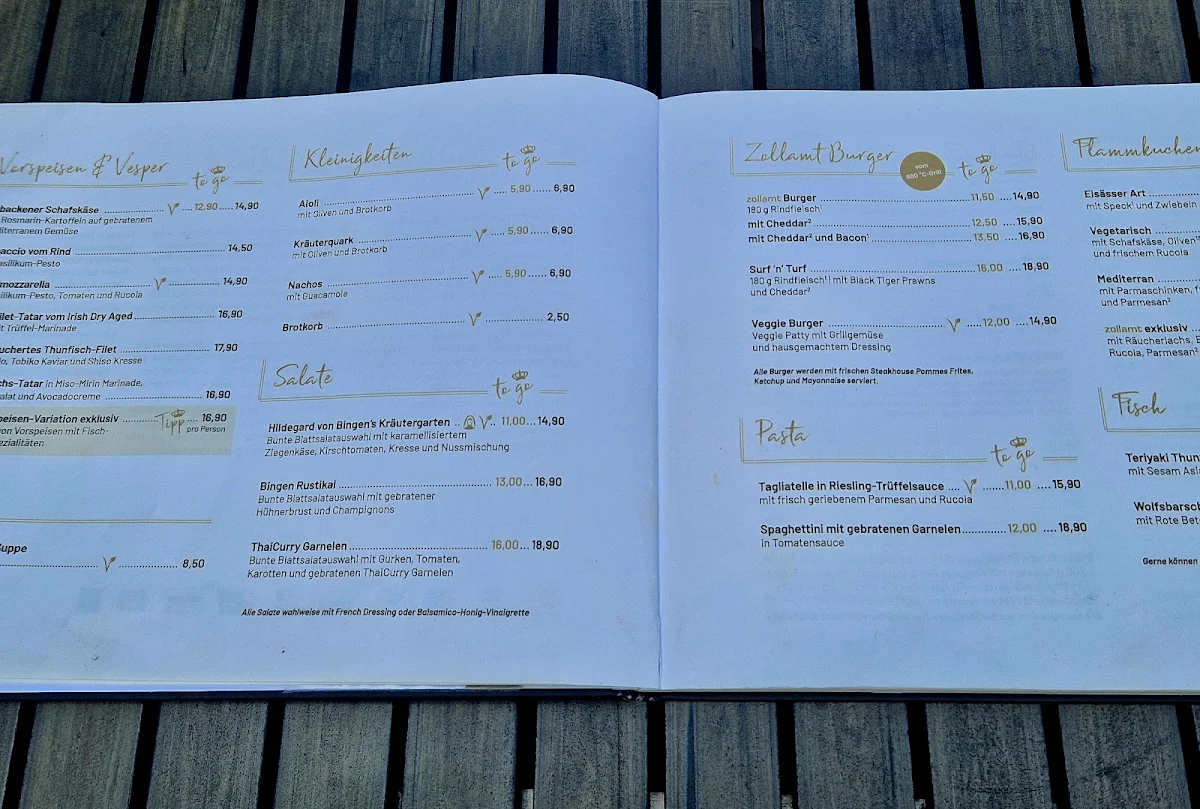 Vorspeisen & Vesper to go
backener Schafskäse 12,90 14,90
Rosmarin-Kartoffeln auf gebratenem
literranem Gemüse
accio vom Rind 14,50
asilikum-Pesto
mozzarella 14,90
ilikum-Pesto, Tomaten und Rucola
ilet-Tatar vom Irish Dry Aged 16,90
it Trüffel-Marinade
uchertes Thunfisch-Filet 17,90
lo, Tobiko Kaviar und Shiso Kresse
chs-Tatar in Miso-Mirin Marinade,
alat und Avocadocreme 16,90
peisen-Variation exklusiv Tipp 16,90
von Vorspeisen mit Fisch- pro Person
ezialitäten
Suppe
8,50
Kleinigkeiten to go
Aioli 5,90 6,90
mit Oliven und Brotkorb
Kräuterquark 5,90 6,90
mit Oliven und Brotkorb
Nachos 5,90 6,90
mit Guacamole
Brotkorb 2,50
Salate to go
Hildegard von Bingen's Kräutergarten 11,00 14,90
Bunte Blattsalatauswahl mit karamellisiertem
Ziegenkäse, Kirschtomaten, Kresse und Nussmischung
Bingen Rustikal 13,00 16,90
Bunte Blattsalatauswahl mit gebratener
Hühnerbrust und Champignons
ThaiCurry Garnelen 16,00 18,90
Bunte Blattsalatauswahl mit Gurken, Tomaten,
Karotten und gebratenen ThaiCurry Garnelen
Alle Salate wahlweise mit French Dressing oder Balsamico-Honig-Vinaigrette
Zollamt Burger vom 800 °C-Grill to go
zollamt Burger 11,50 14,90
180 g Rindfleisch¹
mit Cheddar² 12,50 15,90
mit Cheddar² und Bacon¹ 13,50 16,90
Surf 'n' Turf 16,00 18,90
180 g Rindfleisch¹ mit Black Tiger Prawns
und Cheddar²
Veggie Burger 12,00 14,90
Veggie Patty mit Grillgemüse
und hausgemachtem Dressing
Alle Burger werden mit frischen Steakhouse Pommes Frites,
Ketchup und Mayonnaise serviert.
Pasta to go
Tagliatelle in Riesling-Trüffelsauce 11,00 15,90
mit frisch geriebenem Parmesan und Rucola
Spaghettini mit gebratenen Garnelen 12,00 18,90
in Tomatensauce
Flammkuchen
Elsässer Art
mit Speck¹ und Zwiebeln
Vegetarisch
mit Schafskäse, Oliven
und frischem Rucola
Mediterran
mit Parmaschinken, f
und Parmesan²
zollamt exklusiv
mit Räucherlachs,
Rucola, Parmesan
Fisch
Teriyaki Thun
mit Sesam Asi
Wolfsbarsch
mit Rote Bet
Gerne können